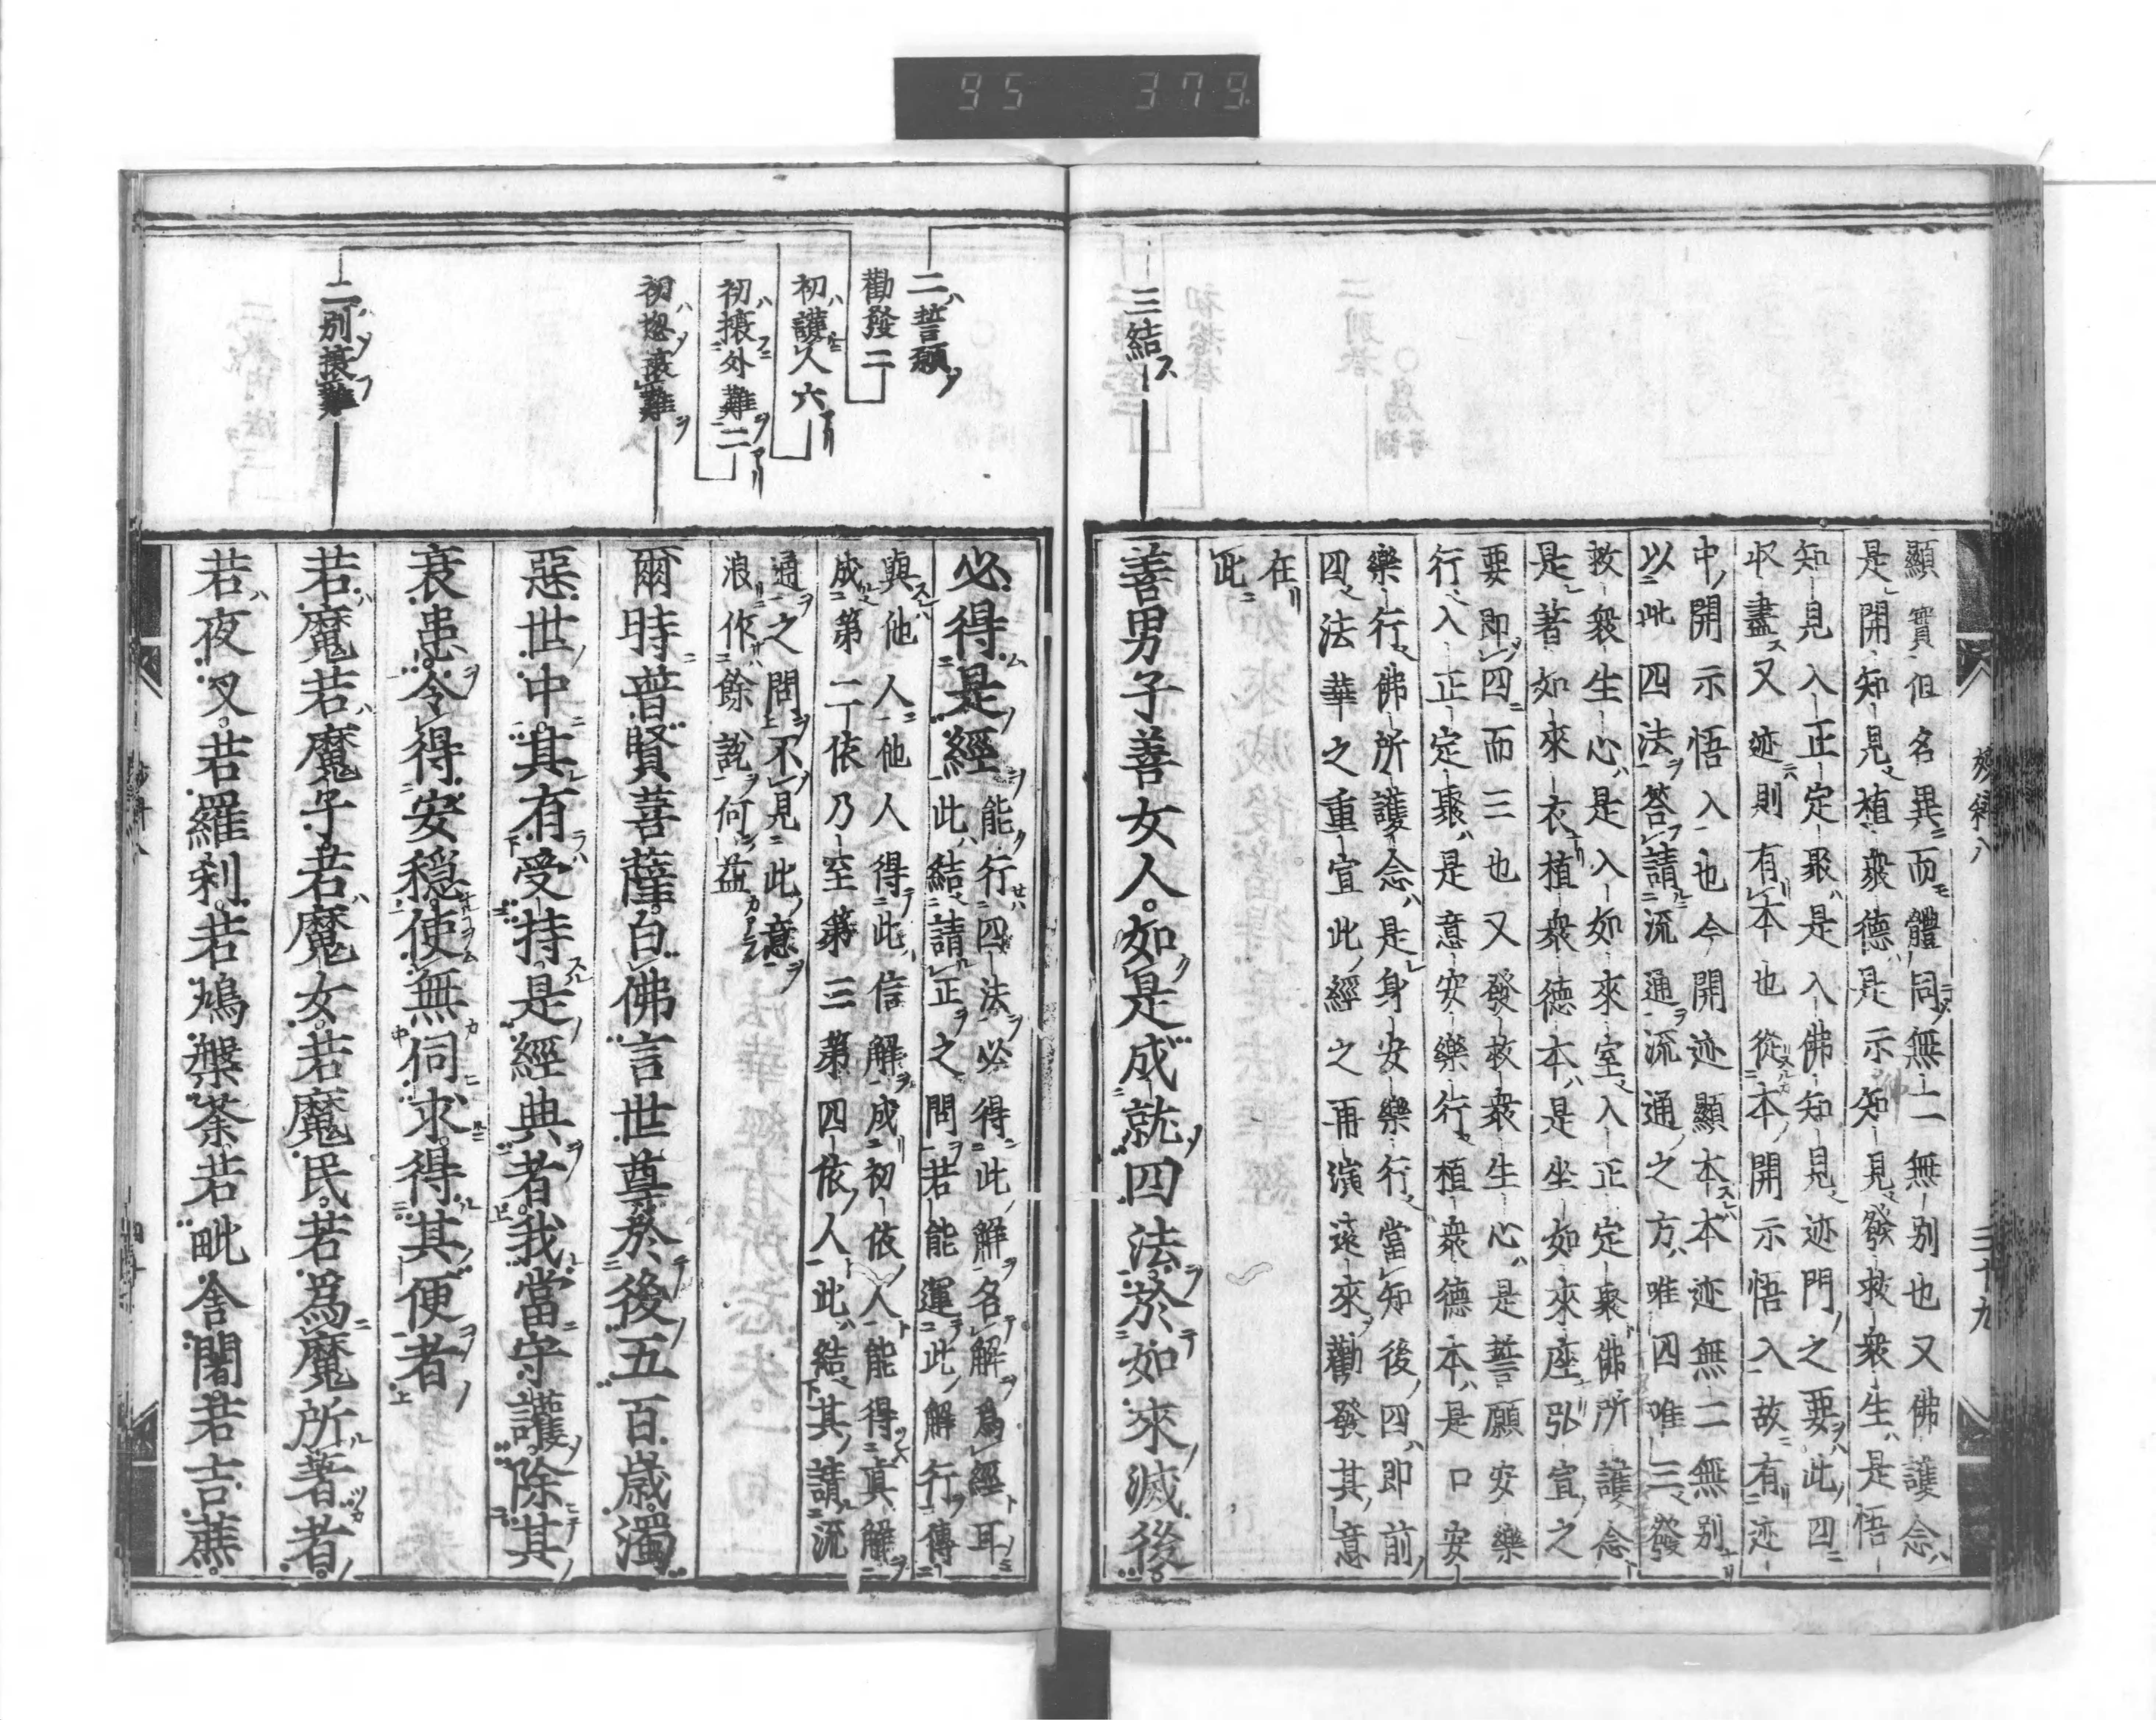 95 379
三結
顯實但名異而體同無二無別也又佛護念
是開知見植衆德是示知見發救衆生是悟
知見入正定聚是入佛知見迹門之要此四
収盡又迹則有本也從本開示悟入故有迹
中開示悟入也今開迹顯本本迹無二無別
以此四法答請流通流通之方唯四唯三發
救衆生心是入如來室入正定聚佛所護念
是著如來衣植衆德本是坐如來座弘宣之
要即四而三也又發救衆生心是誓願安樂
行入正定聚是意安樂行植衆德本是口安
樂行佛所護念是身安樂行當知後四即前
四法華之重宣此經之再演遠來勸發其意
在
此
善男子善女人如是成就四法於如來滅後
三十九
二誓願
勸發二
初護人六
初攘外難二
初惣攘難
二別攘難
必得是經
能行四法必得此解名解爲經耳
此結請正之問若能運此解行傳
與他人他人得此信解成初依人能得眞解
成第二依乃至第三第四依人此結其請流
通之問不見此意
浪作餘說何益
爾時普賢菩薩白佛言世尊於後五百歳濁
惡世中其有受持是經典者我當守護除其
衰患令得安穏使無伺求得其便者
若魔若魔子若魔女若魔民若爲魔所著者
若夜叉若羅刹若鳩槃荼若毗舎闍若吉蔗